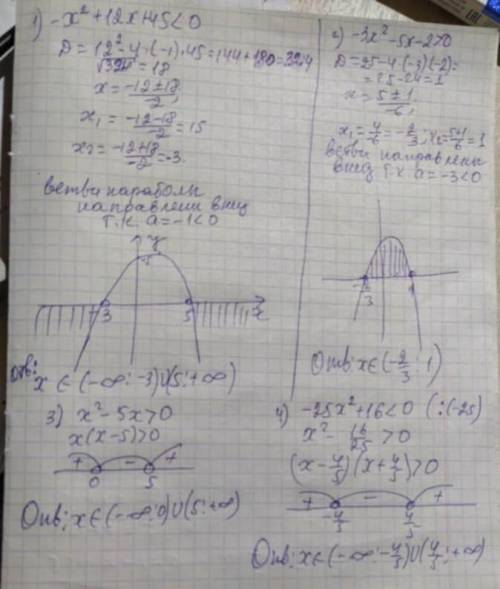 1) -x² + 12x + 45 < 0
D = 12² - 4 · (-1) · 45 = 144 + 180 = 324
√324 = 18
x = -12 ± 18 / -2;
x₁ = -12 - 18 / -2 = 15
x₂ = -12 + 18 / -2 = -3.
ветви параболы
направлены вниз
т.к. a = -1 < 0
y
-3 5 x
Отв: x ∈ (-∞; -3) ∪ (5; +∞)
2) -3x² - 5x - 2 > 0
D = 25 - 4 · (-3) · (-2) =
= 25 - 24 = 1
x = 5 ± 1 / -6;
x₁ = 4/-6 = -2/3; x₂ = 5+1/-6 = 1
ветви направлены
вниз т.к. a = -3 < 0
-2/3 1
Отв: x ∈ (-2/3; 1)
3) x² - 5x > 0
x(x - 5) > 0
+ - +
0 5
Отв: x ∈ (-∞; 0) ∪ (5; +∞)
4) -25x² + 16 < 0 (: (-25)
x² - 16/25 > 0
(x - 4/5)(x + 4/5) > 0
+ - +
-4/5 4/5
Отв: x ∈ (-∞; -4/5) ∪ (4/5; +∞)